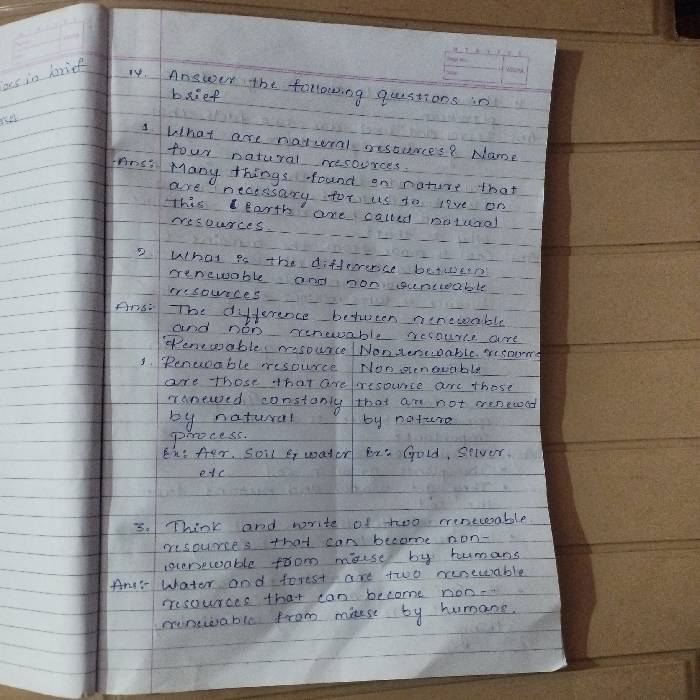 ons in brief
14. Answer the following questions in
brief
1. What are natural resources? Name
four natural resources.
Ans: Many things found on nature that
are necessary for us to live on
this Earth are called natural
resources
2. What is the difference between
renewable and non renewable
resources
Ans: The difference between renewable
and non renewable resource are
Renewable resource | Non renewable resource
1. Renewable resource | Non renewable
are those that are | resource are those
renewed constanly | that are not renewed
by natural | by nature
process.
Ex: Aer, Soil & water | Ex: Gold, Selver.
etc
3. Think and write of two renewable
resources that can become non-
renewable from misuse by humans
Ans:- Water and forest are two renewable
resources that can become non-
renewable from misuse by humans.